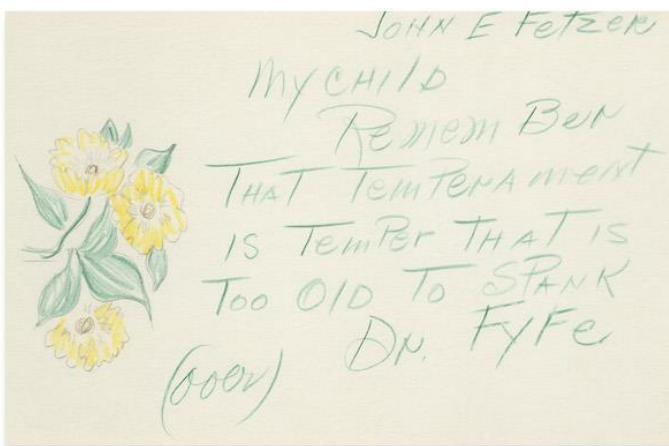 JOHN E FetzeR
My CHIlD
RememBeR
THAT TemPeRAment
IS TemPer THAT IS
Too OlD To SPANK
DR. FyFe
(ooeR)